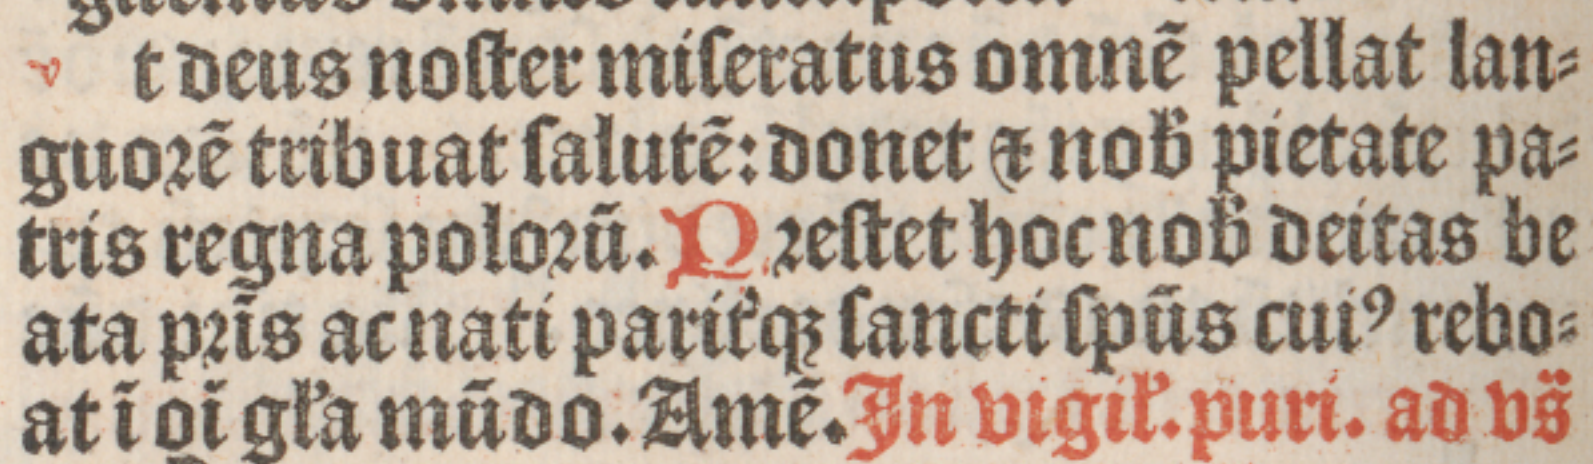 v t deus noſter miſeratus omnē pellat lan⸗
guoꝛē tribuat ſalutē: donet ⁊ nob̄ pietate pa⸗
tris regna poloꝛū. Pꝛeſtet hoc nob̄ deitas be
ata pꝛīs ac nati parit̉qꝫ ſancti ſpūs cuiꝰ rebo⸗
at ī oī gl̉a mūdo. Amē. In vigil̉. puri. ad vs̄